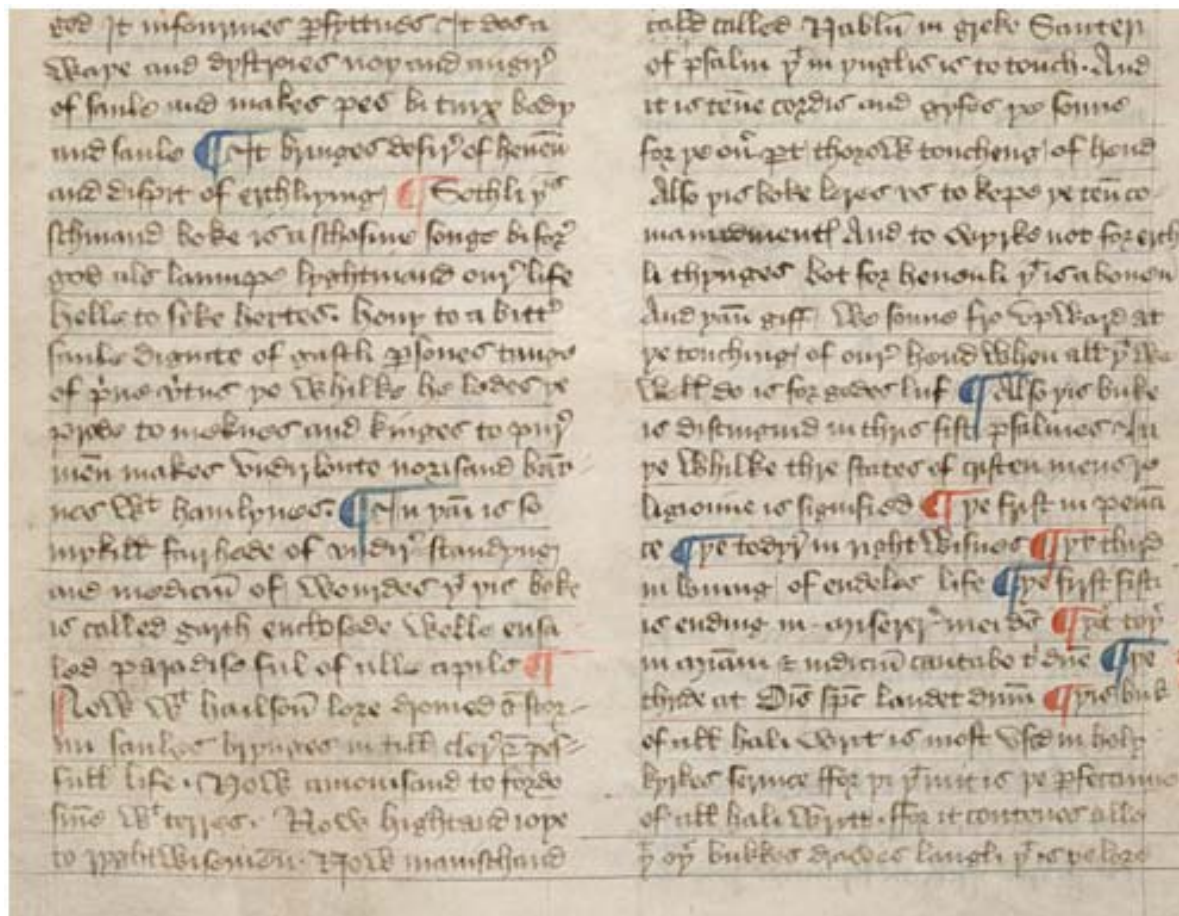 ged It informes ꝑfyttnes It dos a
waye and dystroies noy and angir
of saule and makes pes bitwix body
and saule ¶ It bringes desir of heuen
and dispit of erthli þing ¶ Sothli þis
schinand boke is a schosine songe bifor
god als laumpe lyghtnand our life
helle to seke hertes. hony to a bitter
saule dignite of gastli ꝑsones tunge
of priue vertus þe whilke he lades þe
proude to meknes and kinges to pur
men makes vndirloute norisand barn
nes wᵗ hamlynes. ¶ In þam is so
mykill fairhede of vndir standyng
and medicin of wourdes þᵗ þis boke
is called garth enclosede welle ensa
led paradise ful of alle apils ¶
Now wᵗ hailsom lore dromed & stor
mi saules brynges in till cler & pes
full life. Now amonisand to fordo
sinne wᵗ terres. Now hightand ioye
to ryghtwisemen. Now manischand
cald called Nablum in greke Sauteri
of psalm þᵗ in ynglis is to touch. And
it is tene cordis and gyfes þe soune
for þe ouer ꝑt thorow toucheng of hend
Also þis boke leres vs to kepe þe ten co
mandmentes And to wyrke not for erth
li thynges bot for heuenli þᵗ is abouen
And þan giff we soune fro vpward at
þe touching of our hend when all þᵗ we
well do is for godes luf ¶ Also þis buke
is distingwid in thris fifti psalmes In
þe whilke thre states of cristen mens re
ligioune is signified ¶ þe first in penan
ce ¶ þe todyr in right wisnes ¶ þe third
in louing of endeles life ¶ þe first fifti
is ending in miserere mei deus ¶ þe toþer
in misericordiam & iudicium cantabo tibi domine ¶ þe
thride at Omnis spiritus laudet dominum ¶ þis buk
of all hali writ is most vsed in holy
kyrkes seruice ffor þi þᵗ in it is þe ꝑfectioune
of all hali wrytt. ffor it contenes alle
þᵗ oþer bukkes drawes langli þᵗ is þe lore